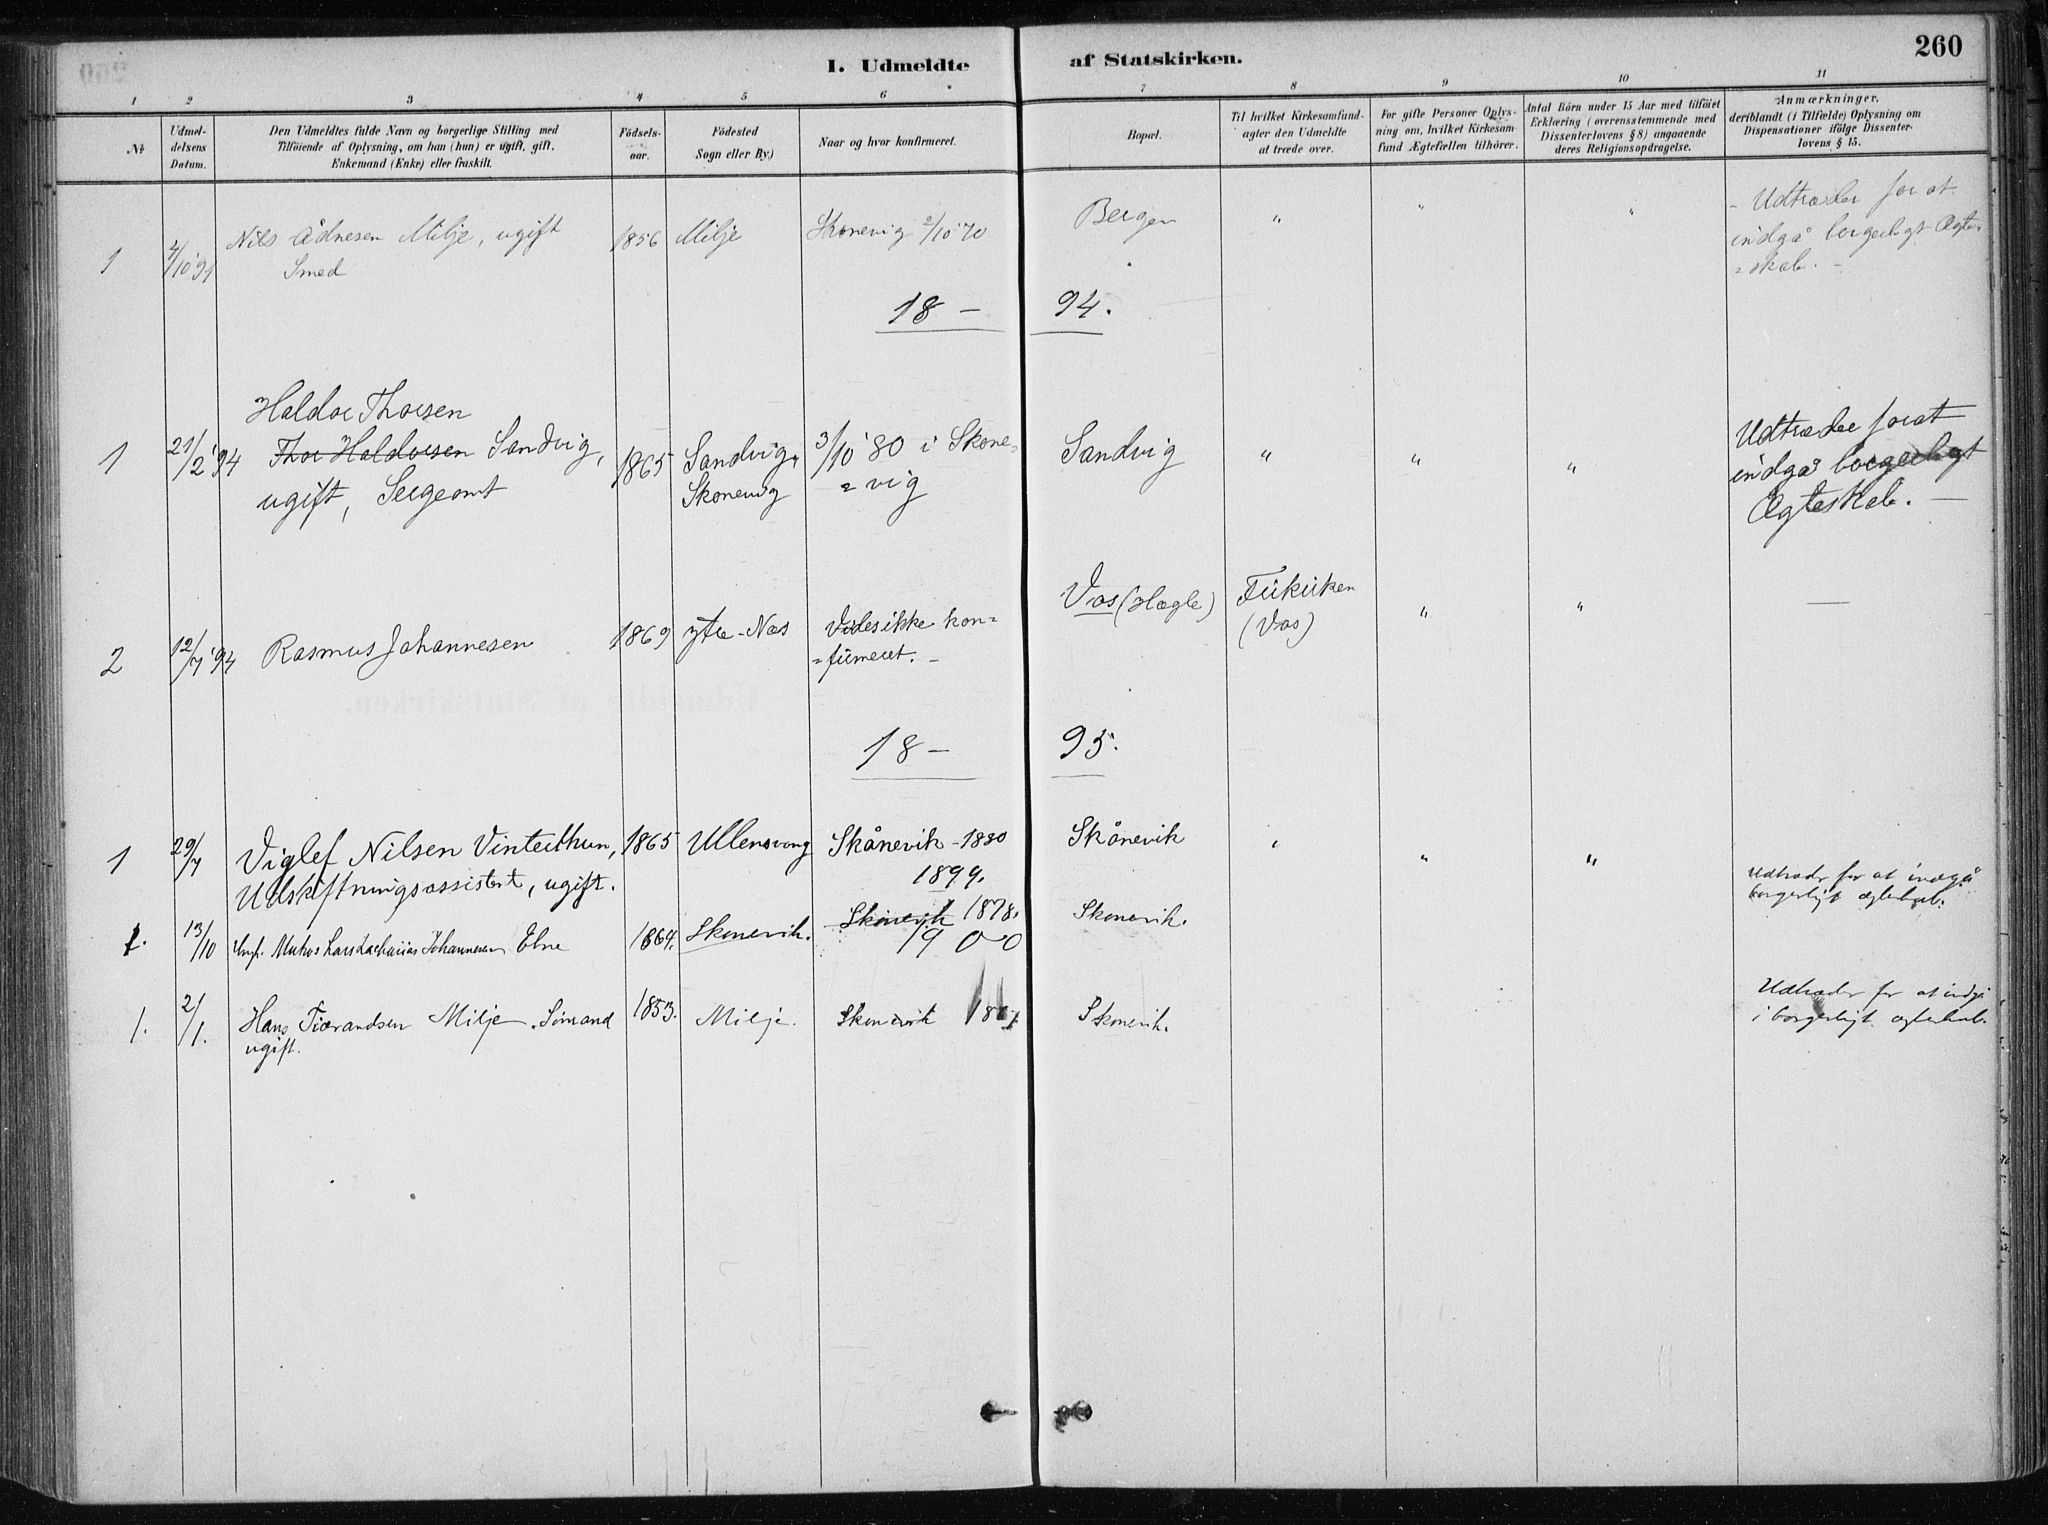 260
I. Udmeldte af Statskirken.
1 2 3 4 5 6 7 8 9 10 11
No
Udmel-
delsens
Datum.
Den Udmeldtes fulde Navn og borgerlige Stilling med
Tilföiende af Oplysning, om han (hun) er ugift, gift,
Enkemand (Enke) eller fraskilt.
Födsels-
aar.
Födested
Sogn eller By.)
Naar og hvor konfirmeret.
Bopæl.
Til hvilket Kirkesamfund-
agter den Udmeldte
at træde over.
For gifte Personer Oplys-
ning om, hvilket Kirkesam-
fund Ægtefællen tilhörer.
Antal Börn under 15 Aar med tilföiet
Erklæring (overensstemmende med
Dissenterlovens § 8) angaaende
deres Religionsopdragelse.
Anmærkninger,
deriblandt (i Tilfælde) Oplysning om
Dispensationer ifölge Dissenter-
lovens § 15.
1 4/10 '91 Nils Ådnesen Milje, ugift 1856 Milje Skonevig 2/10 '70 Bergen " " " - Udtræder for at
Smed indgå borgerligt Ægte=
=skab. -
18 - 94.
Haldor Thorsen
1 21/2 '94 Thor Haldorsen Sandvig, 1865 Sandvig, 3/10 '80 i Skone= Sandvig " " " Udtræder for at
ugift, Sergeant Skonevig =vig indgå borgerligt
Ægteskab. -
2 12/7 '94 Rasmus Johannesen 1869 ytre-Næs Vides ikke kon= Vos (Hægle) Frikirken " " -
=firmeret. - (Vos)
18 - 95.
1 29/7 Viglef Nilsen Vinterthun, 1865 Ullensvang Skånevik - 1880 Skånevik " " "
Udskiftningsassistent, ugift. Udtræder for at indgå
borgerligt ægteskab.
1899.
1. 13/10 Ungk. Lars Zacharias Johannesen Ebne 1864. Skonevik. Skonevik 1878. Skonevik.
1900
1. 2/1. Hans Tiærandsen Milje. Sömand 1853. Milje. Skonevik Skonevik. Udtræder for at indgå
ugift. i borgerligt ægteskab.